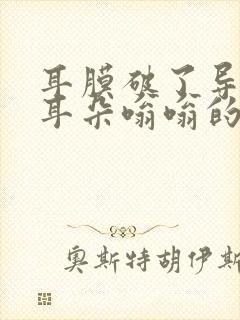 耳膜破了导
耳朵嗡嗡的
奥斯特胡伊斯